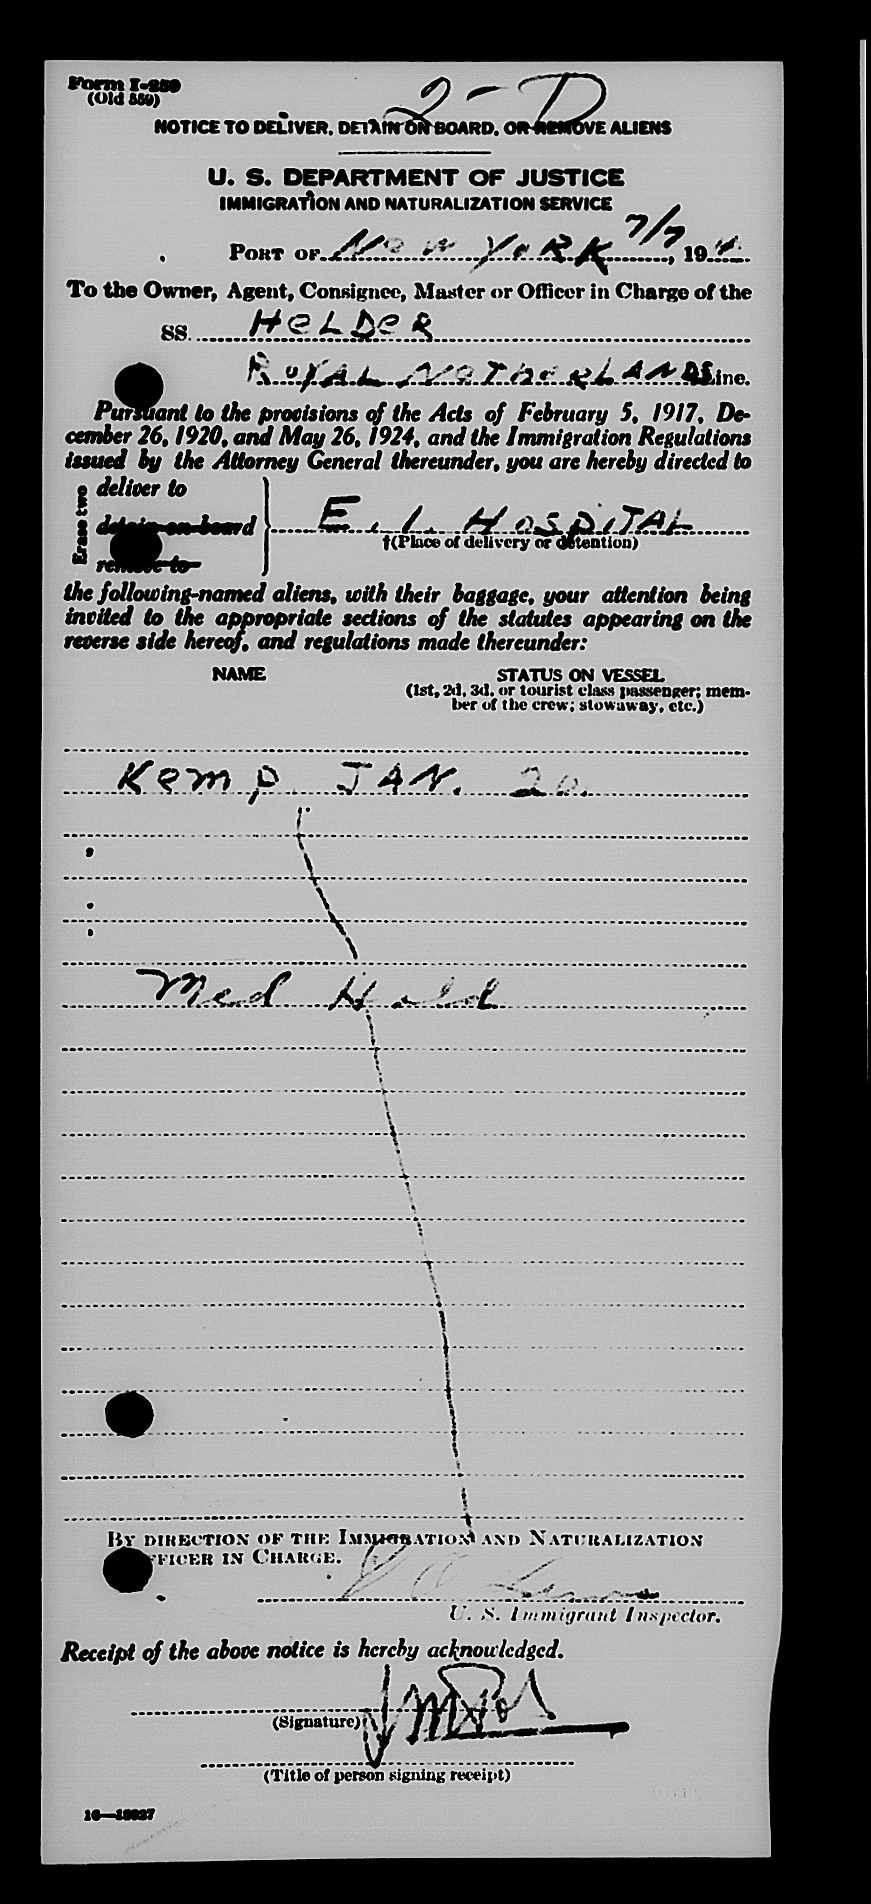 Form I-259
(Old 559)
2-D
NOTICE TO DELIVER, DETAIN ON BOARD, OR REMOVE ALIENS
U. S. DEPARTMENT OF JUSTICE
IMMIGRATION AND NATURALIZATION SERVICE
PORT OF New YORK 7/7, 194
To the Owner, Agent, Consignee, Master or Officer in Charge of the
SS. HeLDeR
ROYAL NeTherLANDS Line.
Pursuant to the provisions of the Acts of February 5, 1917, De-
cember 26, 1920, and May 26, 1924, and the Immigration Regulations
issued by the Attorney General thereunder, you are hereby directed to
Erase two
deliver to
detain on board
remove to
E. I. HOSpiTAL
†(Place of delivery or detention)
the following-named aliens, with their baggage, your attention being
invited to the appropriate sections of the statutes appearing on the
reverse side hereof, and regulations made thereunder:
NAME STATUS ON VESSEL
(1st, 2d, 3d, or tourist class passenger; mem-
ber of the crew; stowaway, etc.)
Kemp. JAN. 20.
Med Hold
BY DIRECTION OF THE IMMIGRATION AND NATURALIZATION
OFFICER IN CHARGE.
U. S. Immigrant Inspector.
Receipt of the above notice is hereby acknowledged.
(Signature)
(Title of person signing receipt)
16—18027